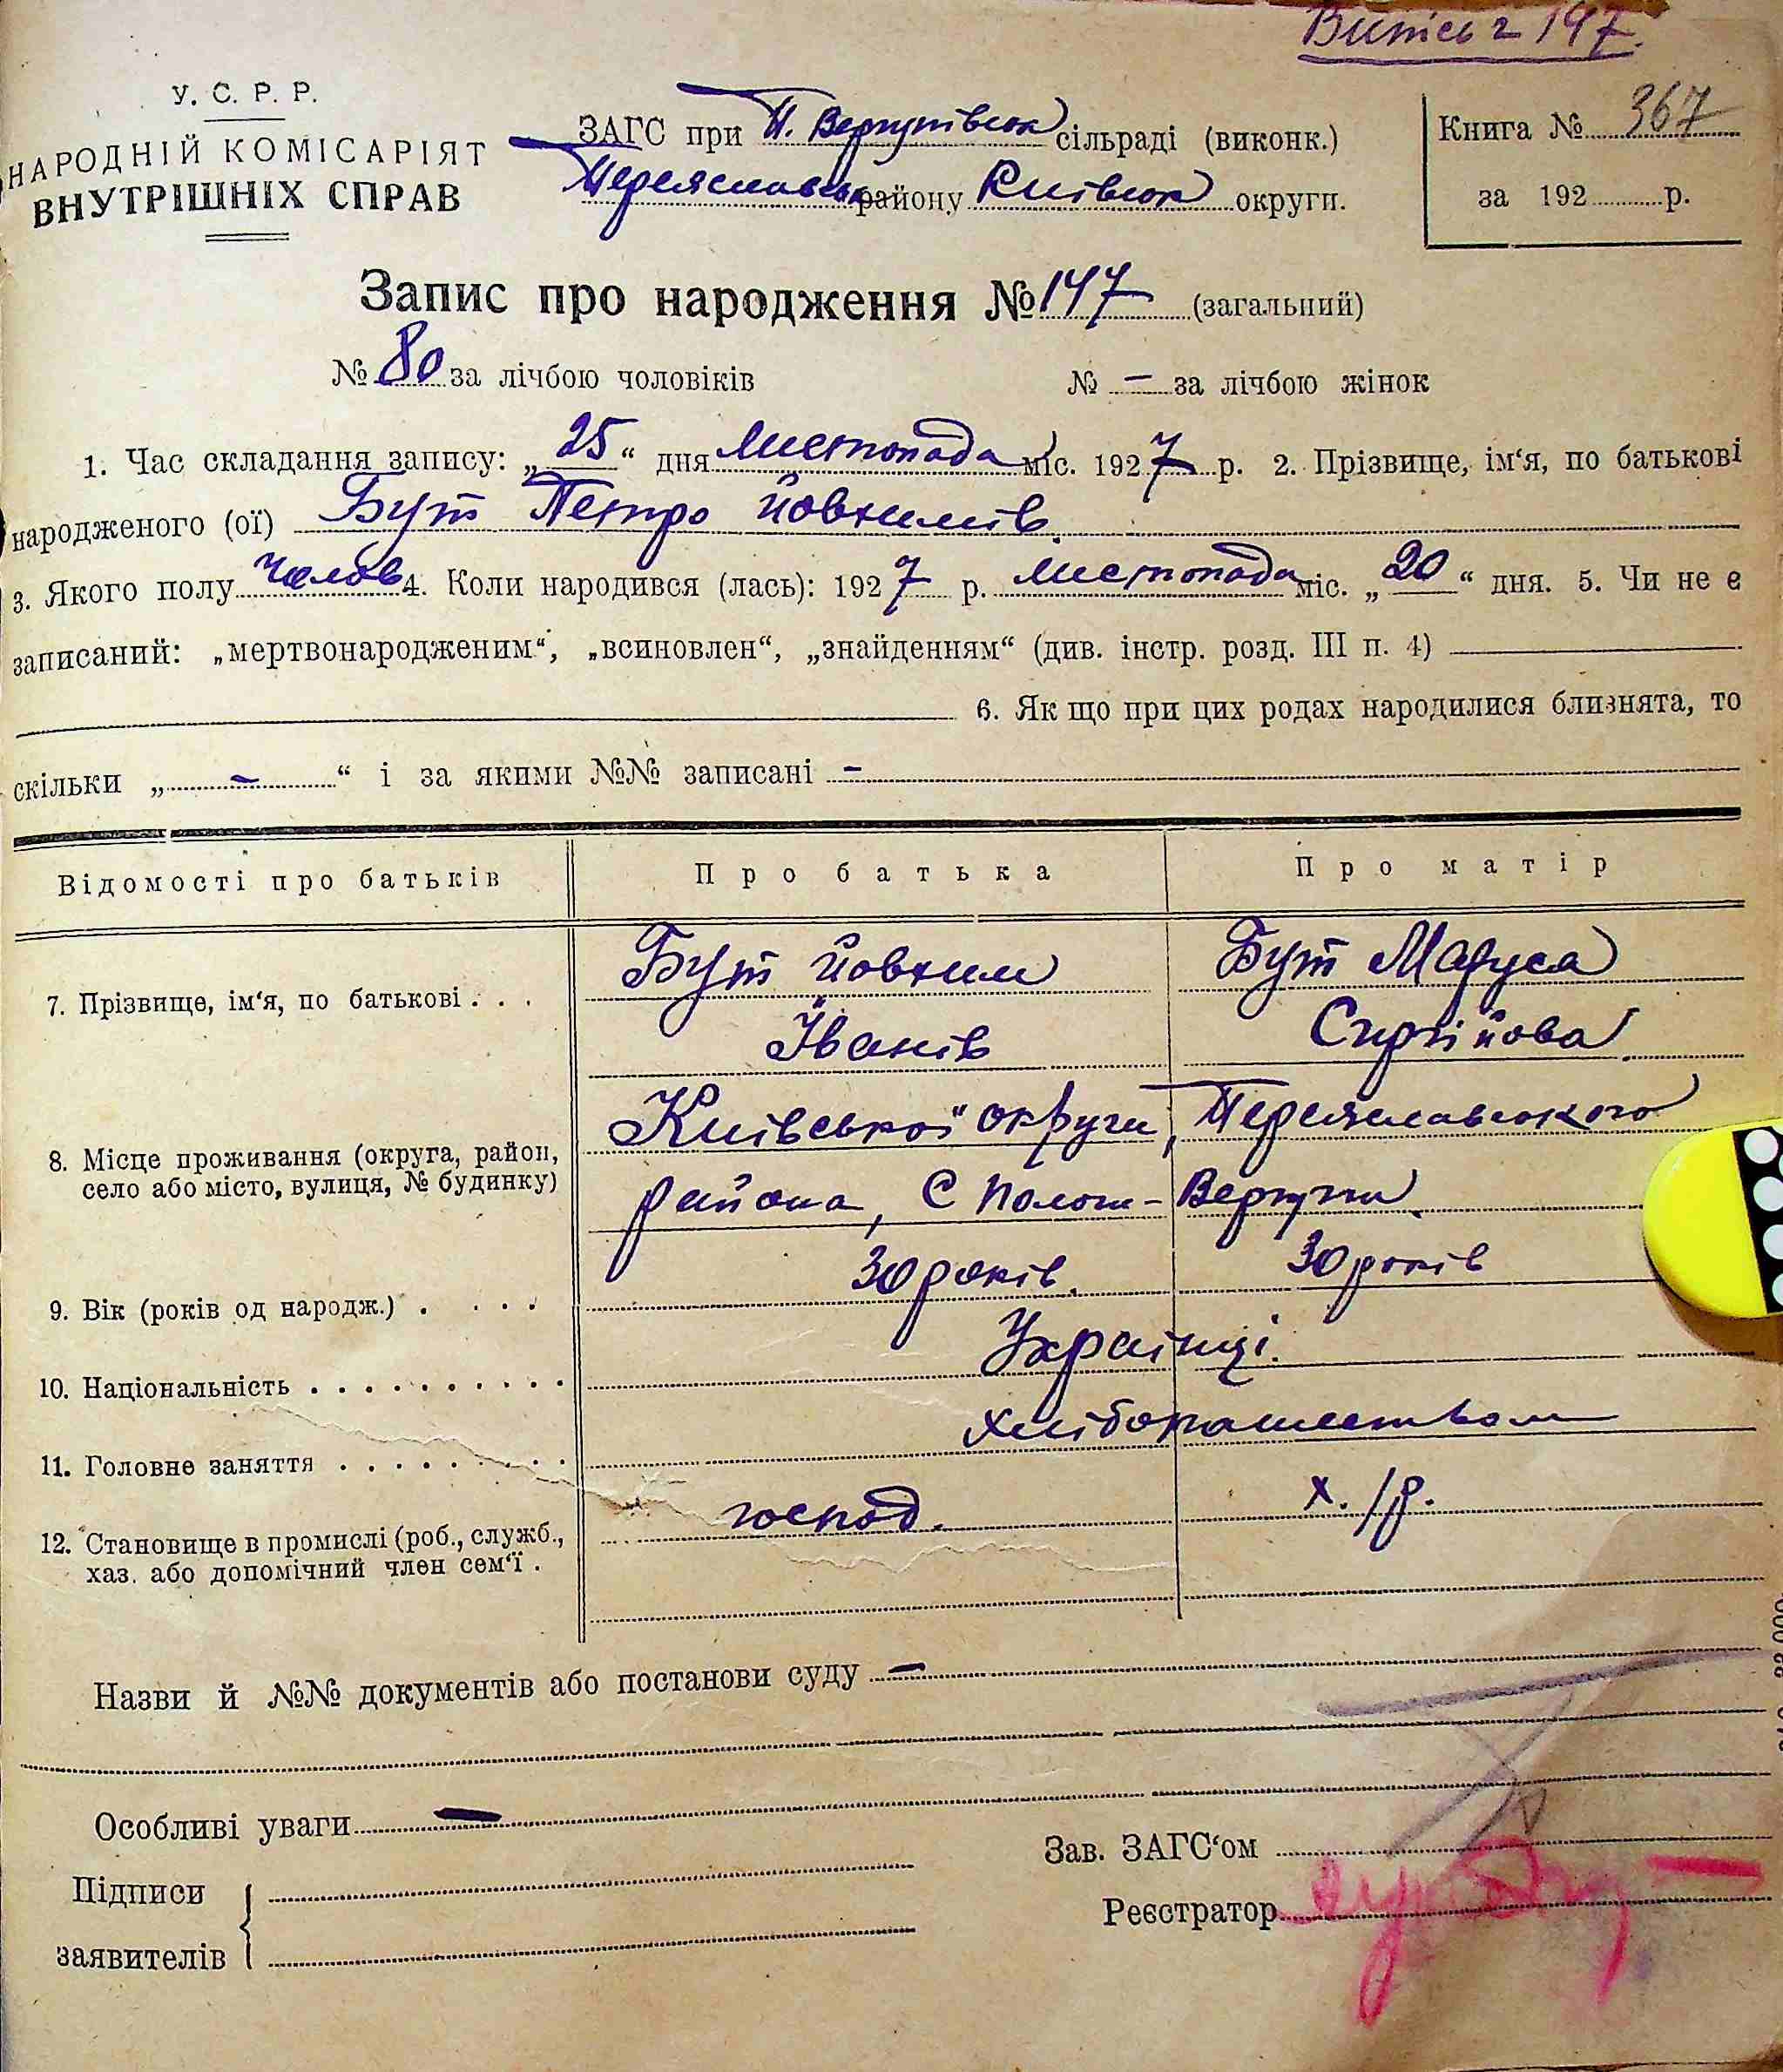 Витсь 2 197.
У. С. Р. Р.
НАРОДНІЙ КОМІСАРІЯТ
ВНУТРІШНІХ СПРАВ
ЗАГС при П. Вергунівськ сільраді (виконк.)
Переяславськ району Київськ округи.
Книга № 367
за 192 р.
Запис про народження № 147 (загальний)
№ 80 за лічбою чоловіків № – за лічбою жінок
1. Час складання запису: „ 25 “ дня Листопада міс. 1927 р. 2. Прізвище, ім‘я, по батькові
народженого (ої) Бут Петро Йовхимів
3. Якого полу Чолов 4. Коли народився (лась): 1927 р. Листопада міс. „ 20 “ дня. 5. Чи не є
записаний: „мертвонародженим“, „всиновлен“, „знайденням“ (див. інстр. розд. III п. 4)
6. Як що при цих родах народилися близнята, то
скільки „ – “ і за якими №№ записані –
Відомості про батьків Про батька Про матір
7. Прізвище, ім‘я, по батькові . . . Бут Йовхим Бут Маруся
Іванів Сиргійова
8. Місце проживання (округа, район, село або місто, вулиця, № будинку) Київської округи, Переяславського
района, С Пологи-Вергуни
9. Вік (років од народж.) . . . . 30 років. 30 років
10. Національність . . . . . . . . . . Українці.
11. Головне заняття . . . . . . . . . Хліборашеством
12. Становище в промислі (роб., служб., господ. х./р.
хаз. або допомічний член сем‘ї .
Назви й №№ документів або постанови суду –
Особливі уваги –
Зав. ЗАГС‘ом
Підписи
Реєстратор
заявителів